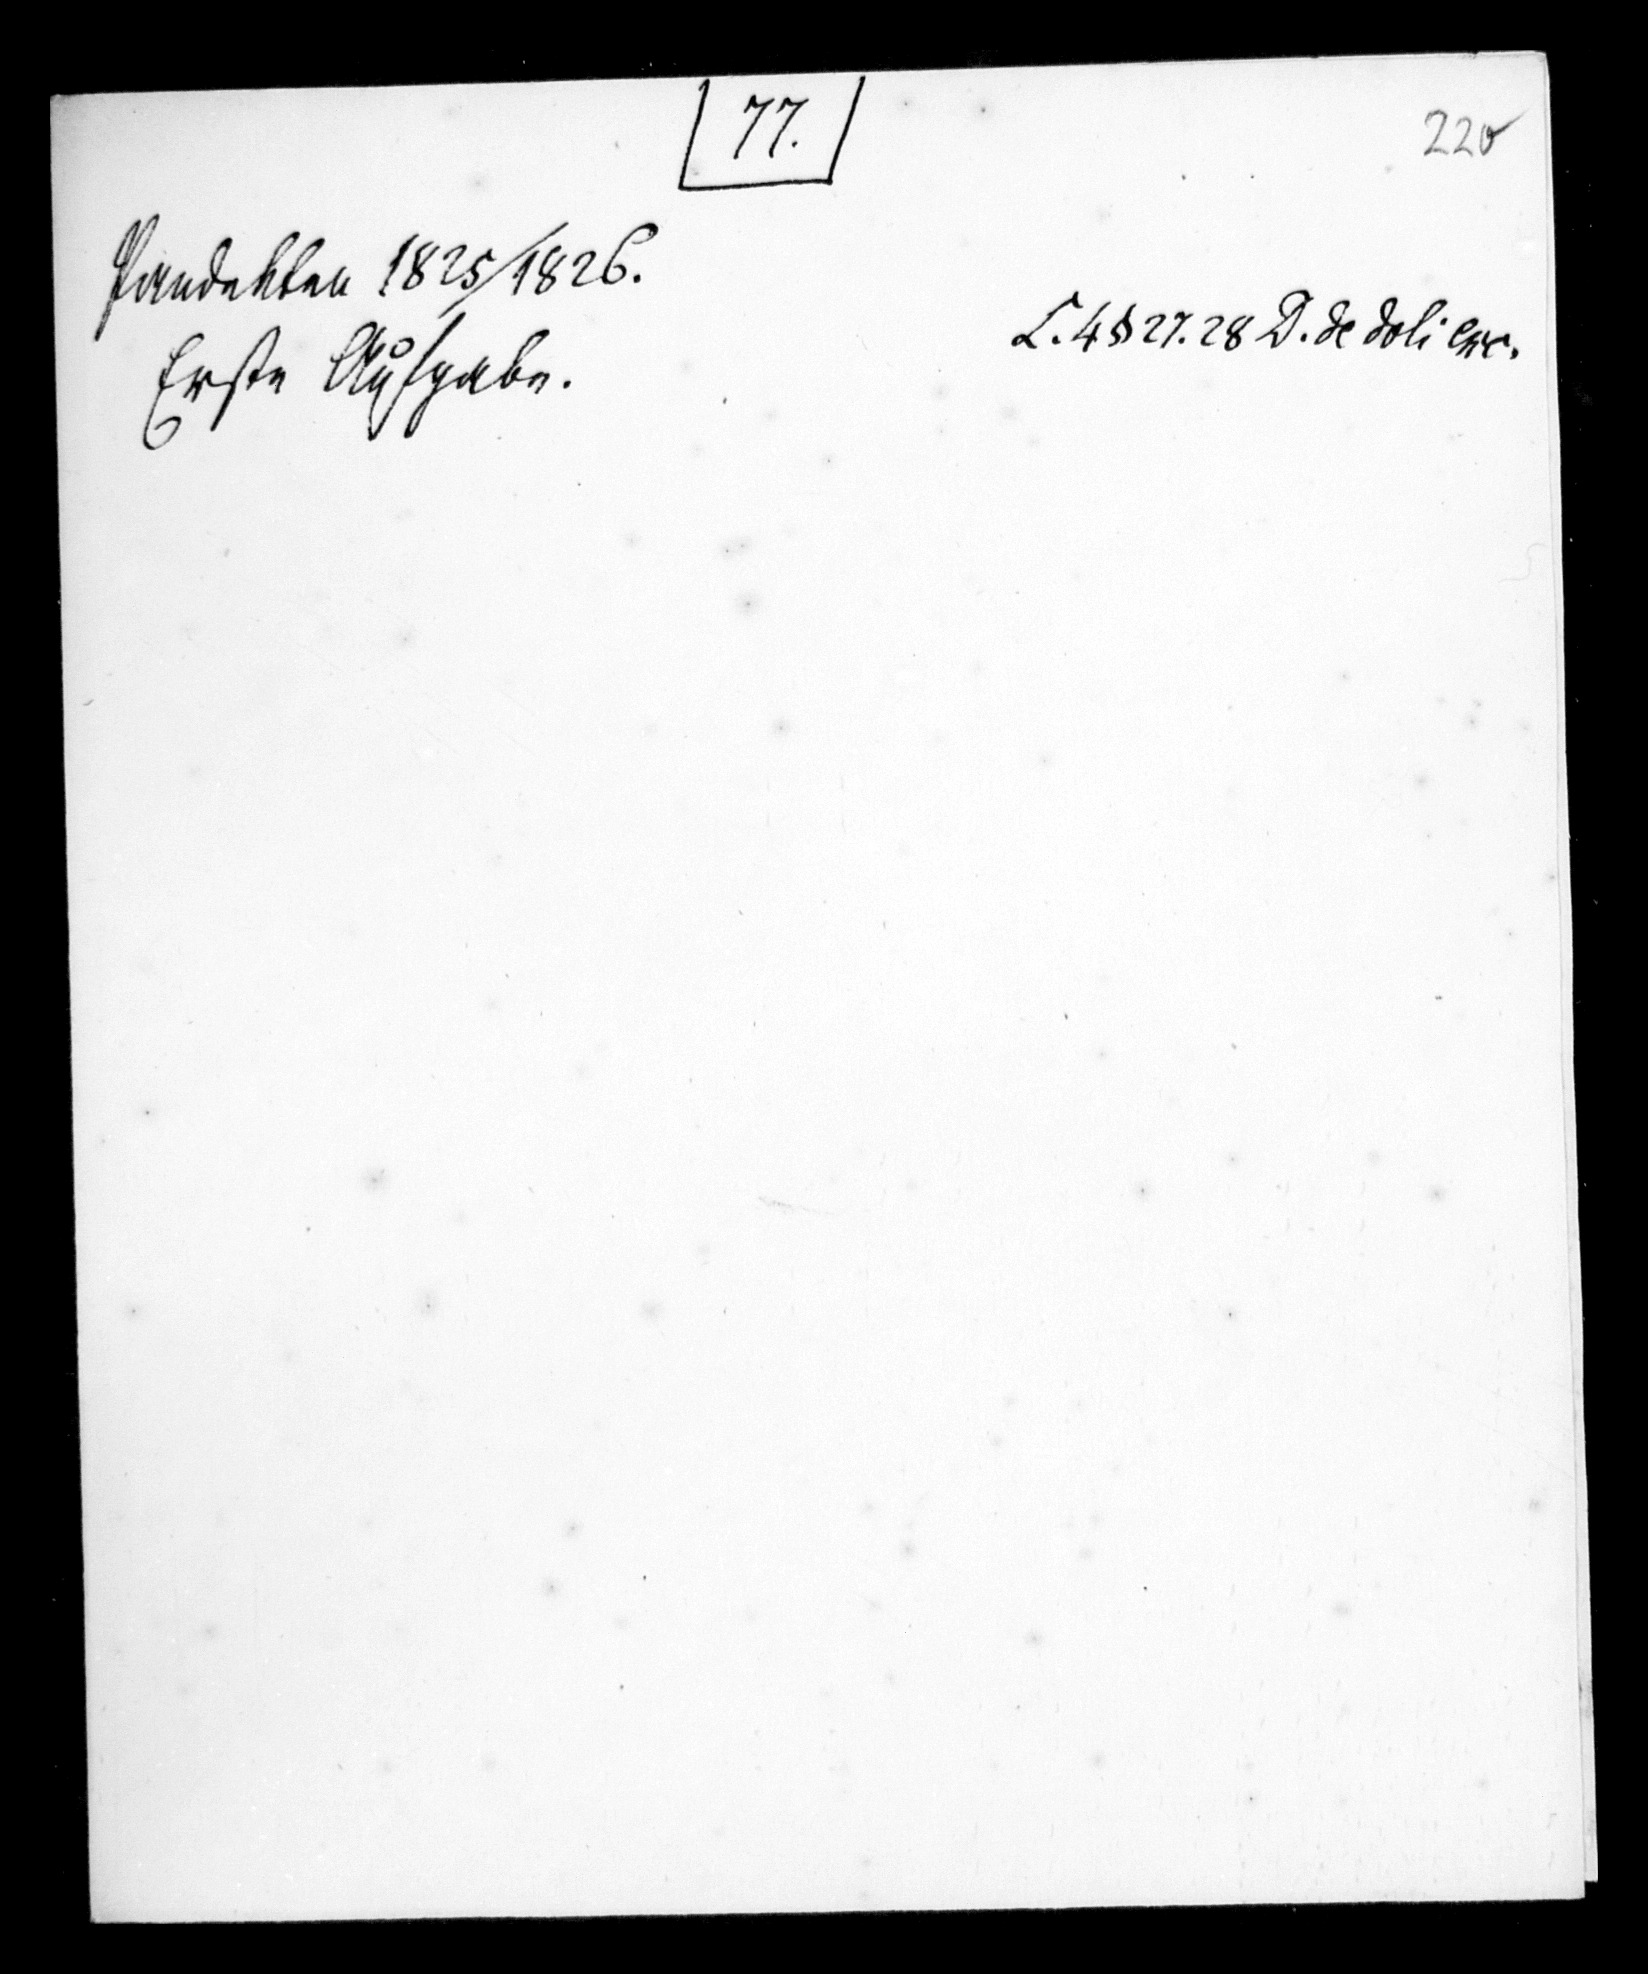 77.
220
Pandekten 1825/1826.
Erste Aufgabe.
L. 4 § 27. 28 D. de doli exc.